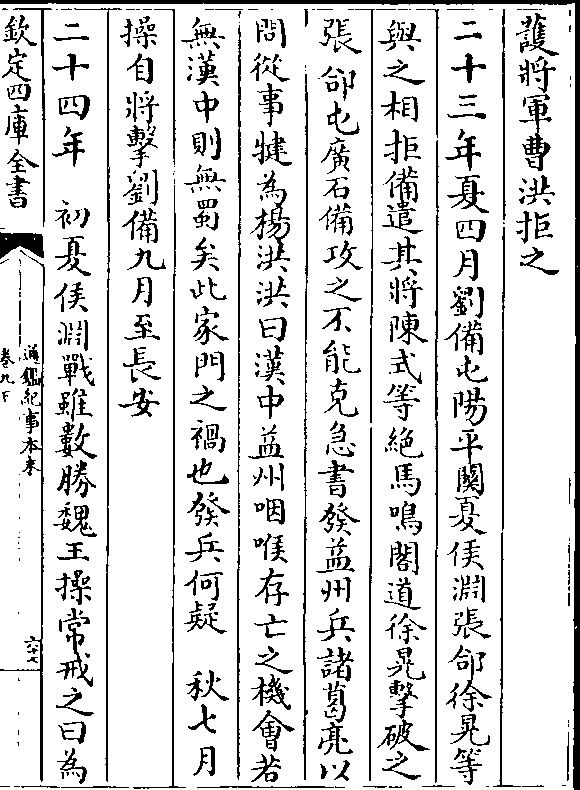 䕶將軍曹洪拒之
二十三年夏四月劉備屯陽平關夏侯淵張郃徐晃等
與之相拒備遣其將陳式等絶馬鳴閣道徐晃擊破之
張郃屯廣石備攻之不能克急書發益州兵諸葛亮以
問從事犍為楊洪洪曰漢中益州咽喉存亡之機會若
無漢中則無蜀矣此家門之禍也發兵何疑　秋七月
操自將擊劉備九月至長安
二十四年　初夏侯淵戰雖數勝魏王操常戒之曰為
欽定四庫全書
通鑑紀事本末
卷九下
六十七